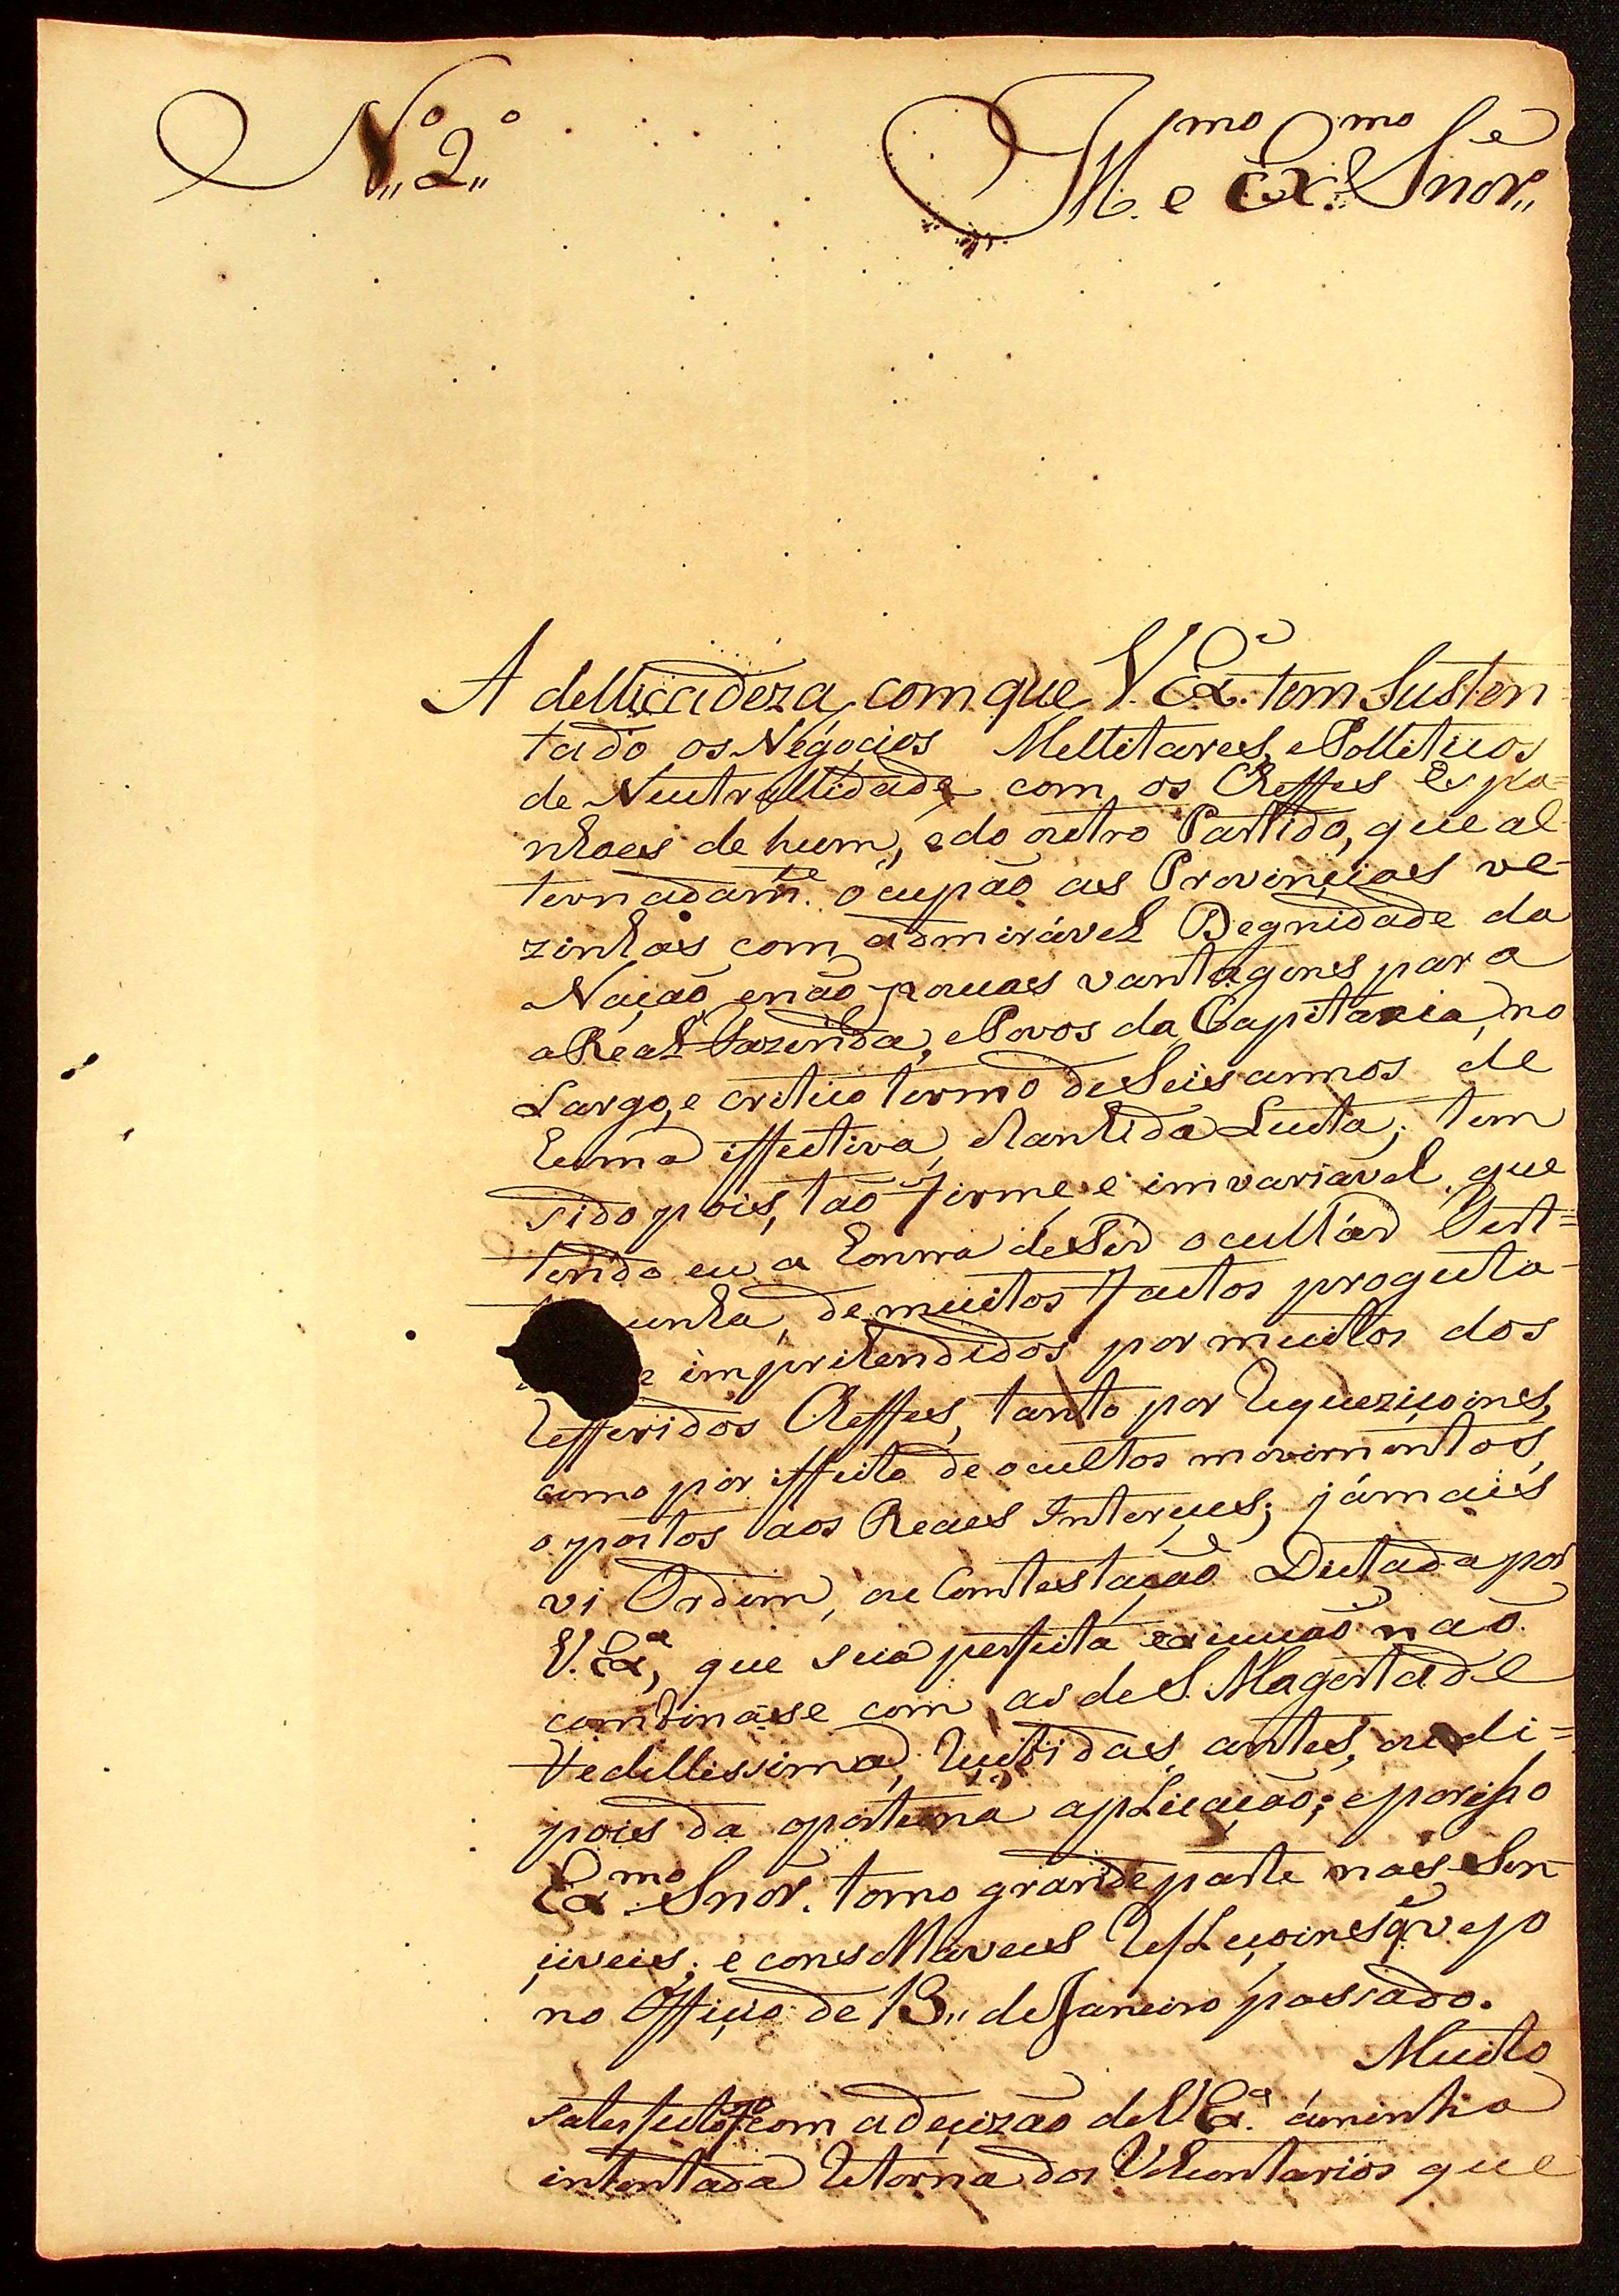 N.º 2.º
Ill.mo e Ex.mo Snõr
A dellicadeza, com que V. Ex.ª tem susten=
tado os Negocios Mellitares, e Pollíticos
de Neutrallidade com os Cheffes Espa=
nhoes de hum, e do outro Partido, que al
ternadam.te ocupão as Provincias ve-
zinhas com admirável Degnidade da
Nação, e não poucas vantagens para
a Real Fazenda, e Povos da Capitania, no
Largo, e critico termo de Seis annos de
huma effectiva, e Luta; tem
sido pois, tão firme, e imvariavel, que
tendo eu a honrra de Ser ocullar Test=
unha, de muitos factos progecta-
e impritendidos por muitos dos
refferidos Cheffes, tanto por requeziçoines,
como por effeito de ocultos movimentos,
opostos aos Reaes Interęces; jámais
vi Ordem, ou Comtestação Dictada por
V. Ex.ª, que sua perfeita execução não
combináse com as de S. Magestade
Fedellissima, recebidas antes, ou di=
pois da oportuna apLicação; e por isso
Ex.mo Snõr. tomo grande parte nas Sen
civeis, e refLeçoines q̃ vejo
no Officio de 13,, de Janeiro passado.
Muito
satesfeito com a decizão de V. Ex.ª á minha
intentada retorna dos Vollontarios que